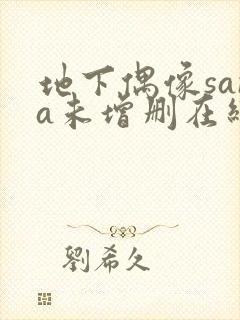 地下偶像sa
a未增删在
劉希久